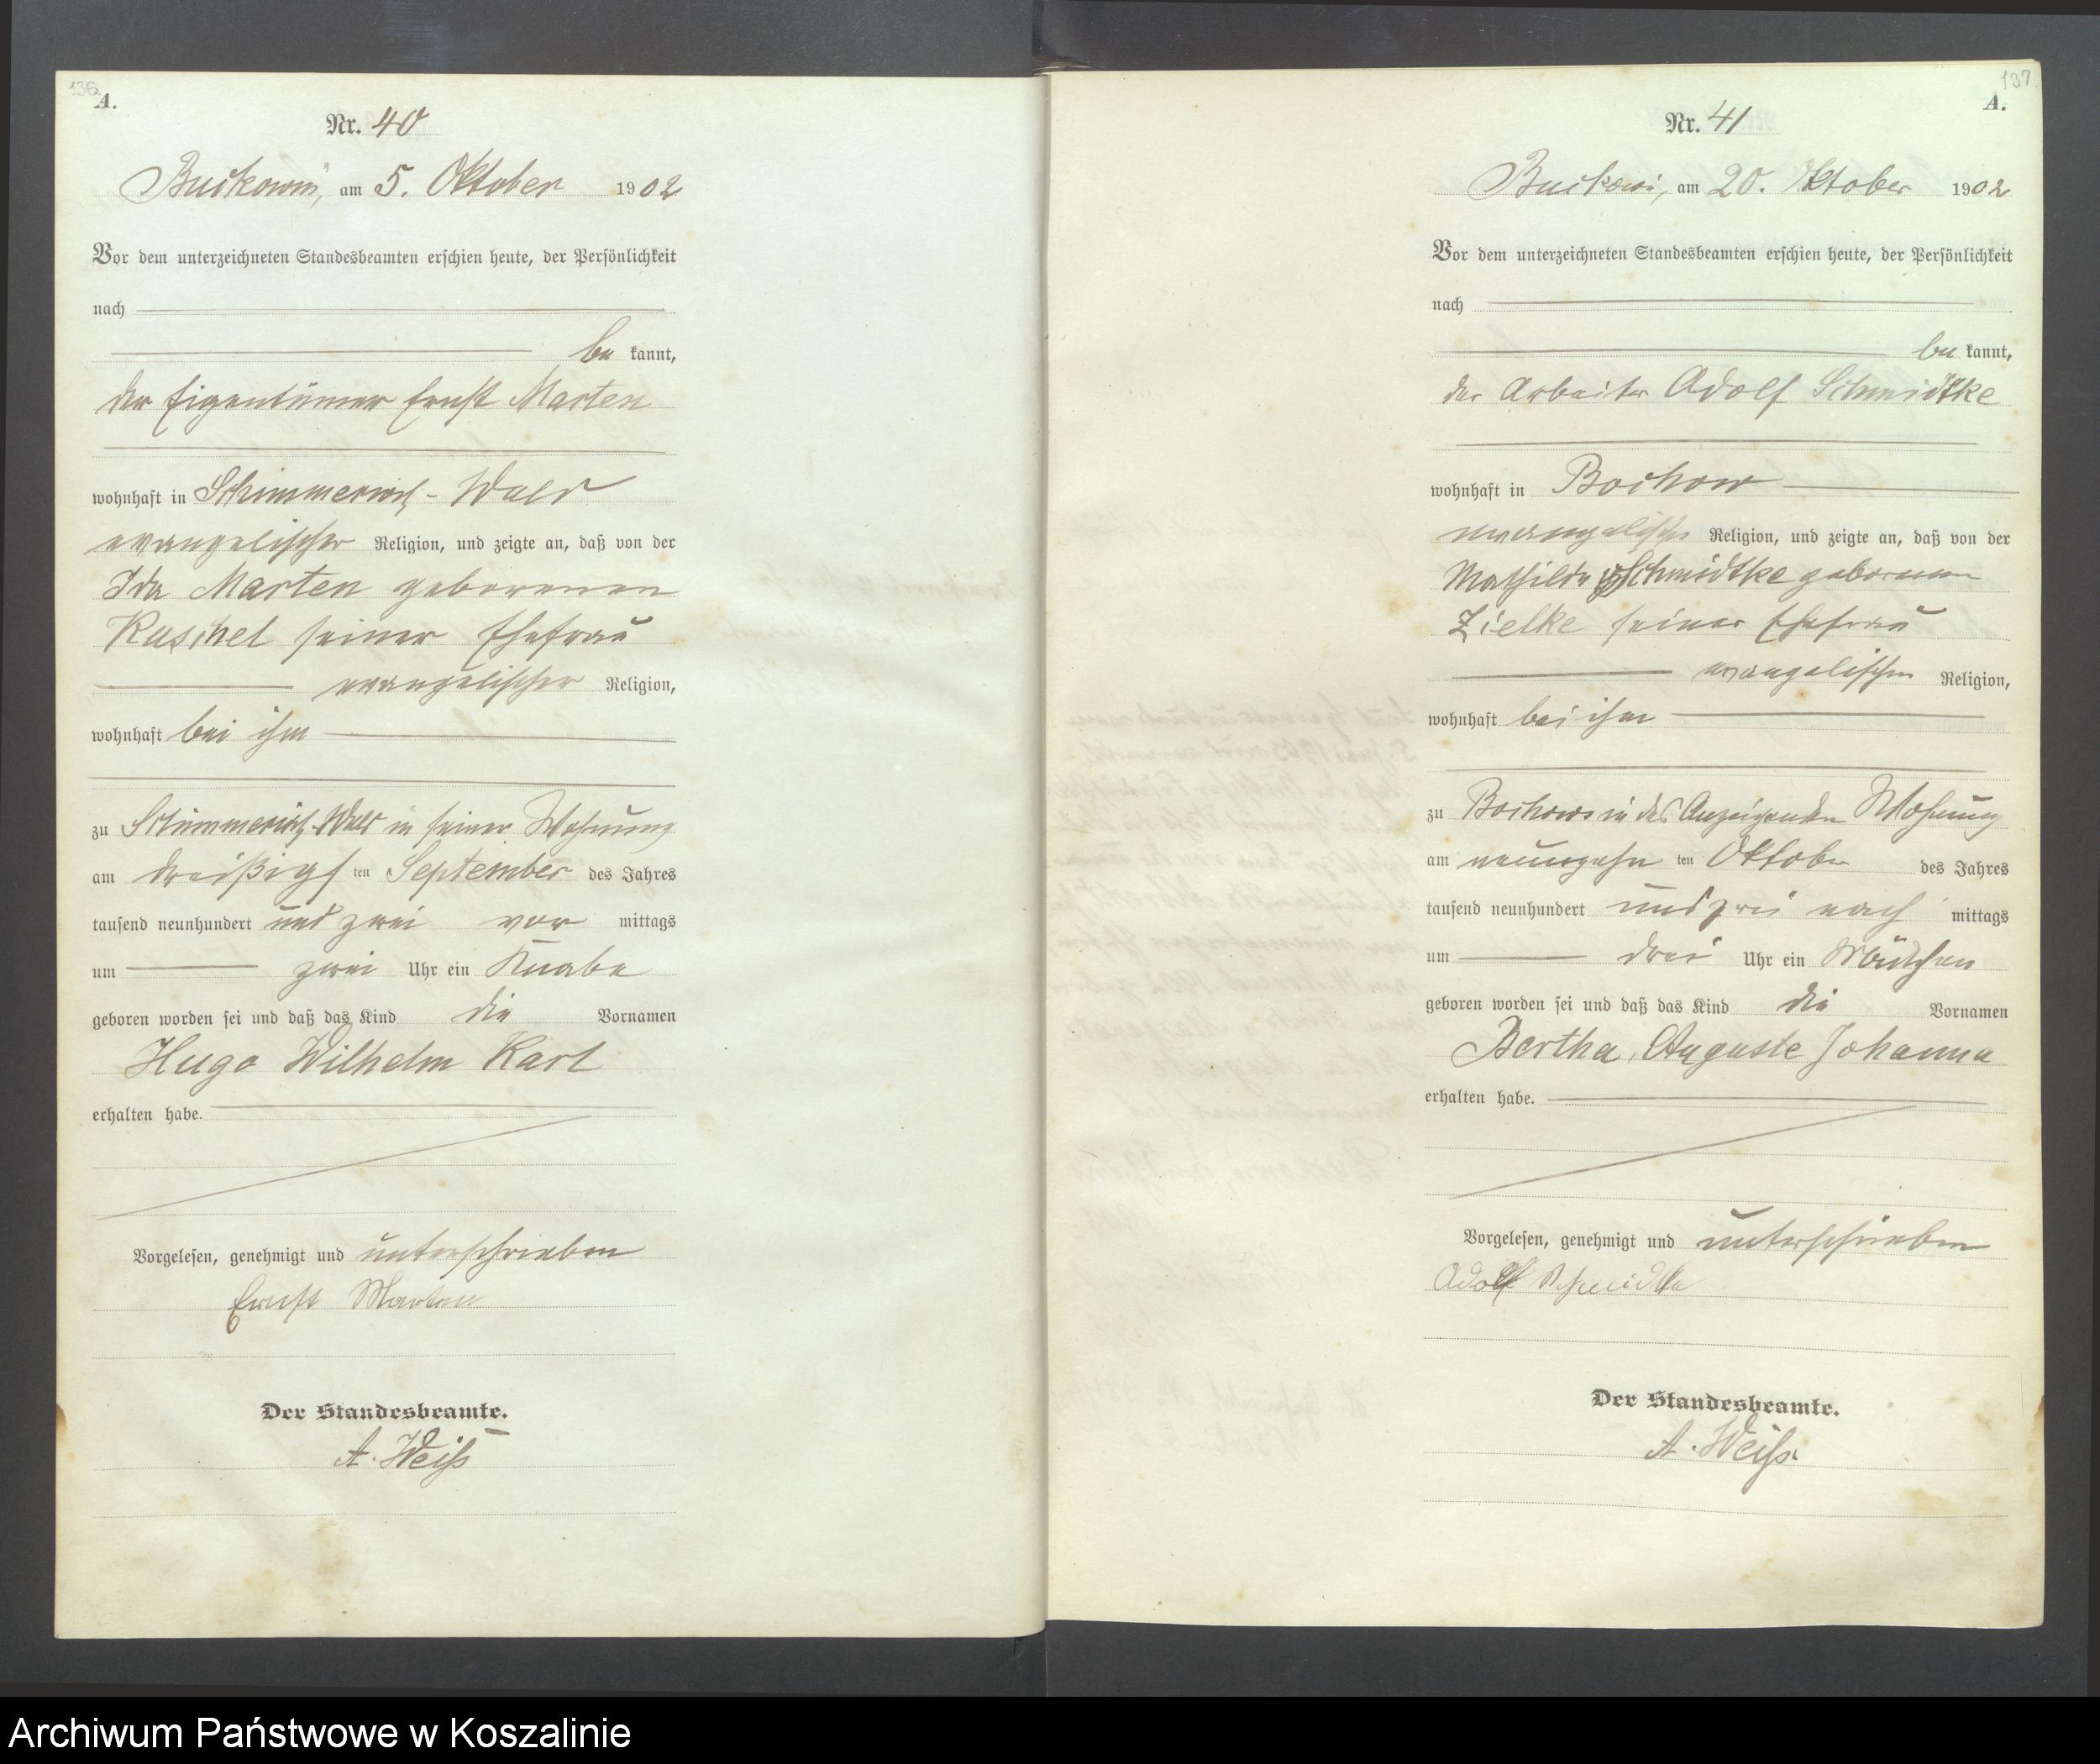 136.
A.
Nr. 40
Buckowin, am 5. Oktober 1902
Vor dem unterzeichneten Standesbeamten erschien heute, der Persönlichkeit
nach
be kannt,
der Eigentümer Ernst Marten
wohnhaft in Schimmerwitz-Wald
evangelischer Religion, und zeigte an, daß von der
Ida Marten geborenen
Kuschel seiner Ehefrau
evangelischer Religion,
wohnhaft bei ihm
zu Schimmerwitz-Wald in seiner Wohnung
am dreißigsten September des Jahres
tausend neunhundert und zwei vor mittags
um zwei Uhr ein Knabe
geboren worden sei und daß das Kind die Vornamen
Hugo Wilhelm Karl
erhalten habe.
Vorgelesen, genehmigt und unterschrieben
Ernst Marten
Der Standesbeamte.
A. Weiß
137.
A.
Nr. 41
Buckowin, am 20. Oktober 1902
Vor dem unterzeichneten Standesbeamten erschien heute, der Persönlichkeit
nach
be kannt,
der Arbeiter Adolf Schmidtke
wohnhaft in Bochow
evangelischer Religion, und zeigte an, daß von der
Mathilde Schmidtke geborenen
Zielke seiner Ehefrau
evangelischen Religion,
wohnhaft bei ihm
zu Bochow in des Anzeigenden Wohnung
am neunzehn ten Oktober des Jahres
tausend neunhundert und zwei nach mittags
um drei Uhr ein Mädchen
geboren worden sei und daß das Kind die Vornamen
Bertha, Auguste Johanna
erhalten habe.
Vorgelesen, genehmigt und unterschrieben
Adolf Schmidtke
Der Standesbeamte.
A. Weiß.
Archiwum Państwowe w Koszalinie